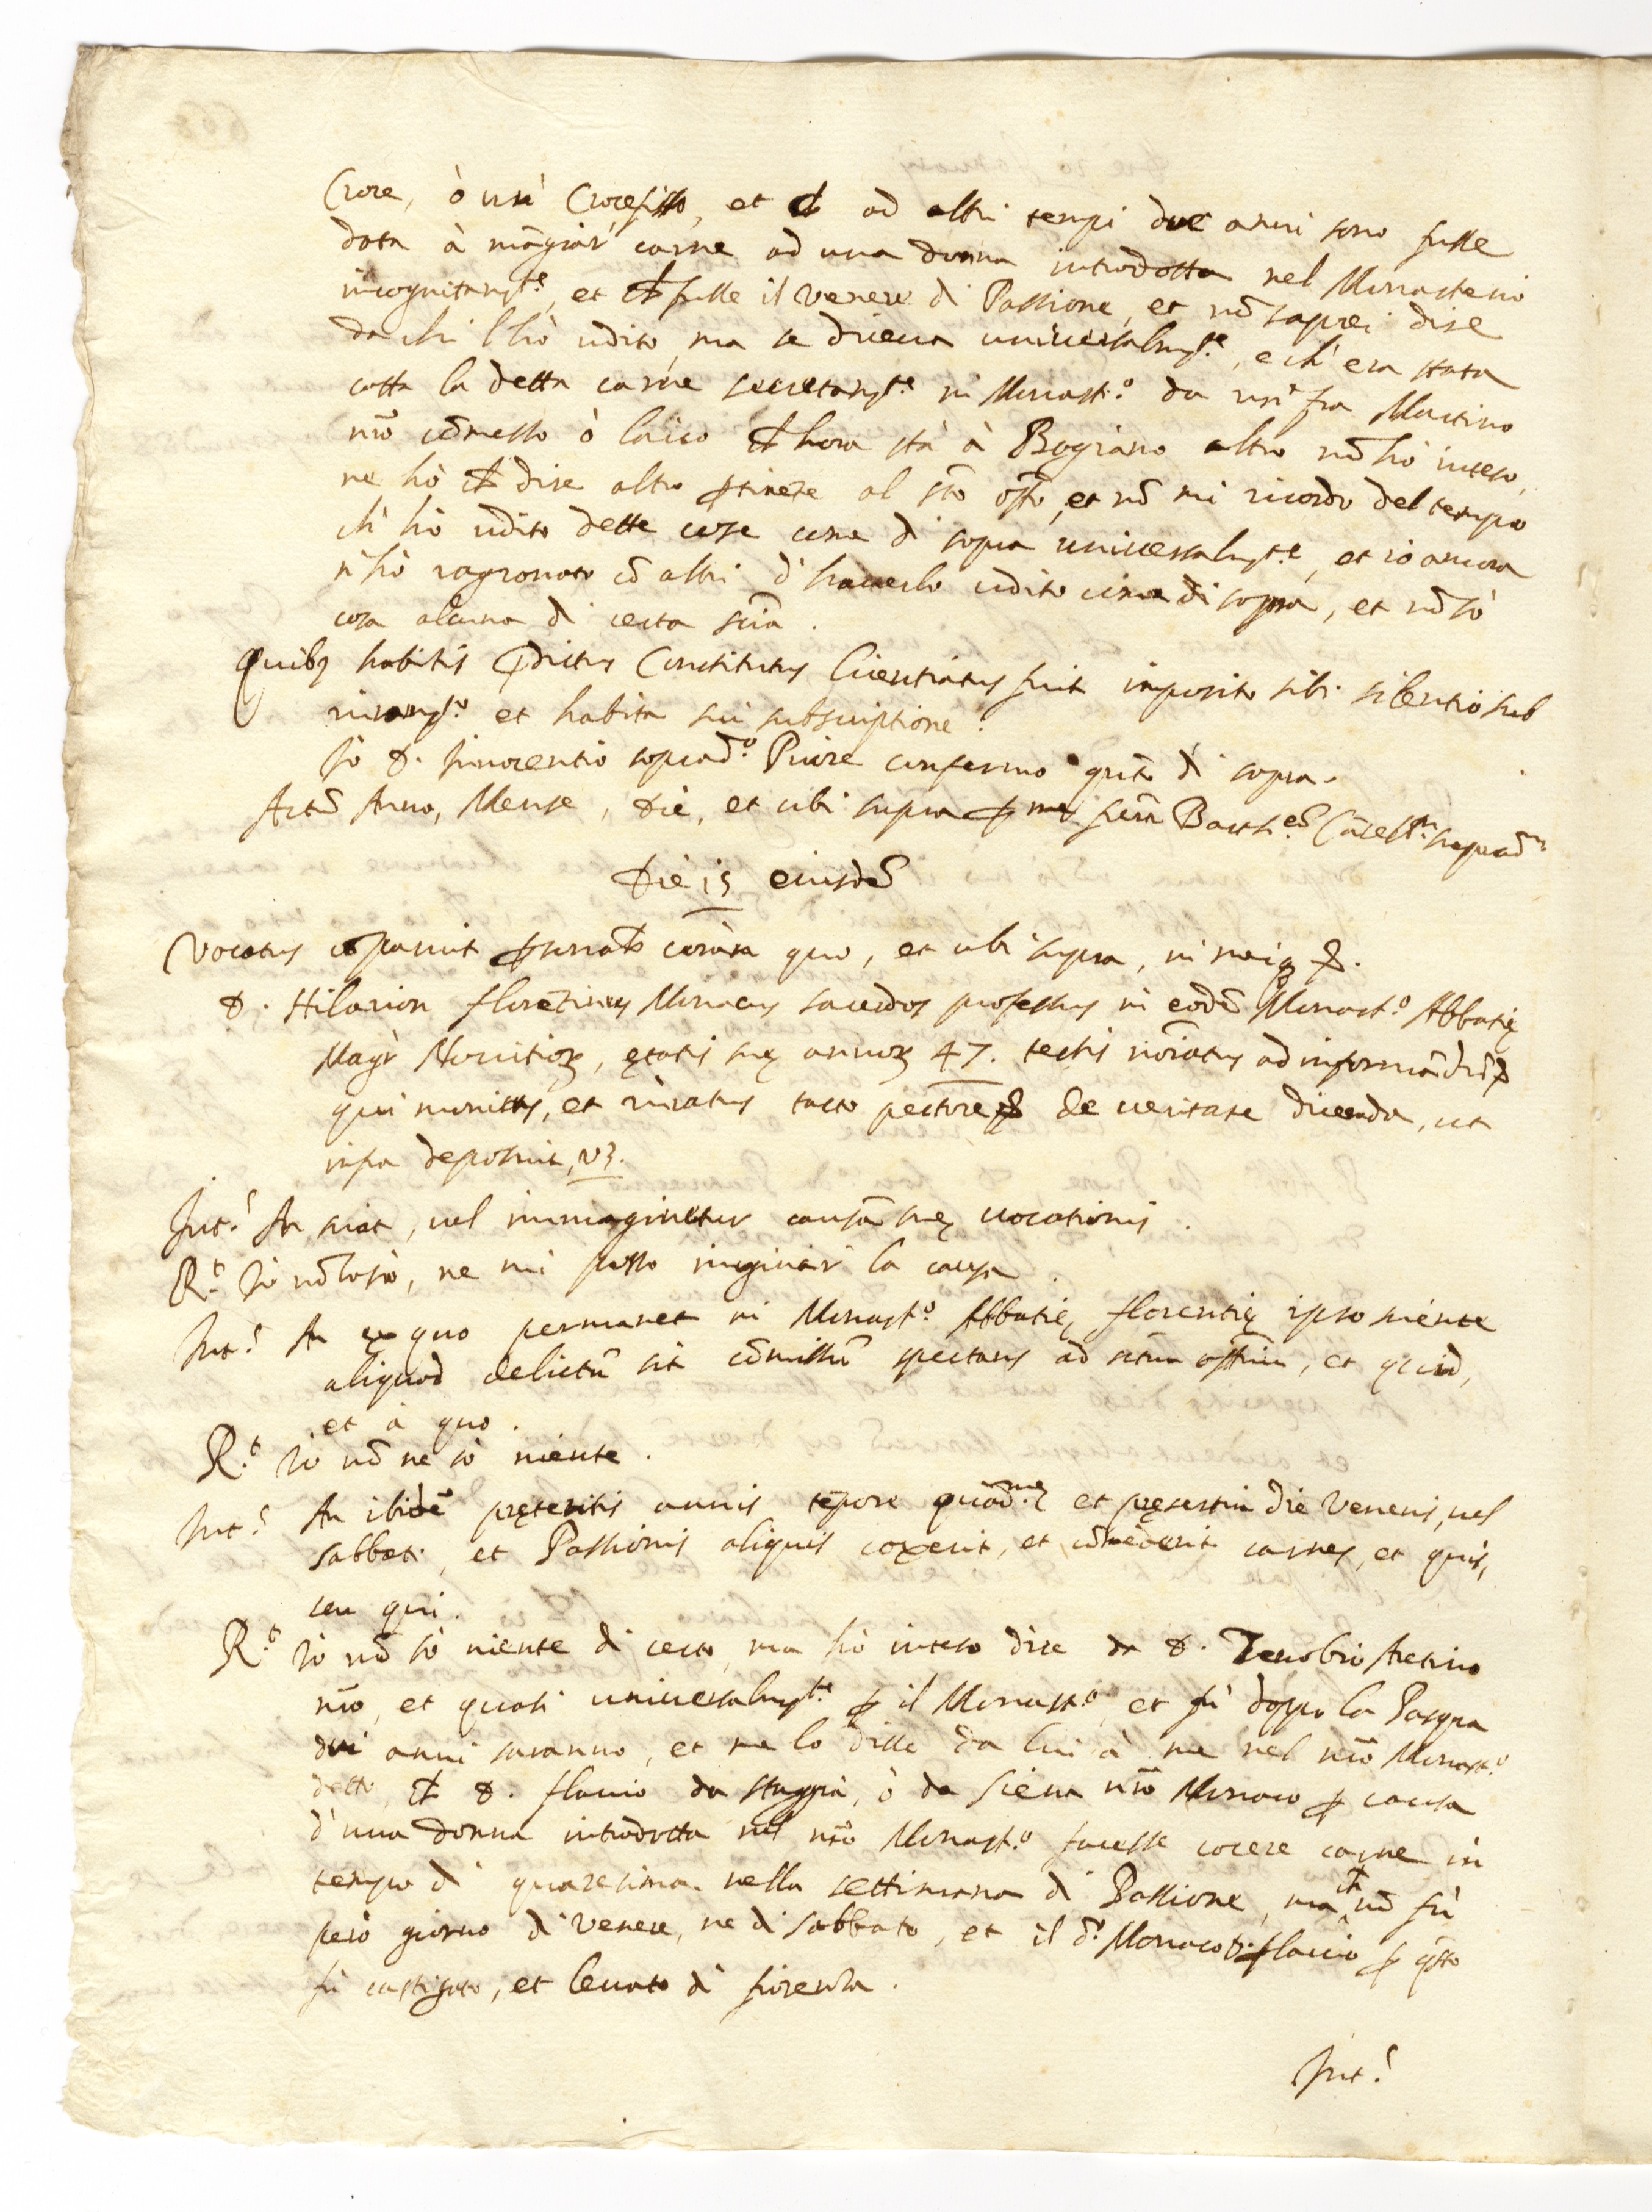 Croce, ò un Crocefisso, et ch ad altri tempi due anni sono fusse
data à mãgiar carne ad una donna introdotta nel Monasterio
incognitam.te, et ch fusse il Venere di Passione, et nõ saprei dire
da chi l'hò udito, ma se diceua uniuersalm.te, e ch'era stata
cotta la detta carne secretam.te in Monast.o da un fra Martino
nr̃o cõmesso ò laico ch hora stà à Bogiano altro nõ hò inteso,
ne hò ch dire altro ꝑtinẽte al sto offo, et nõ mi ricordo del tempo
ch'hò udito dette cose come di sopra uniuersalm.te, et io ancora
n'hò ragionato cõ altri d'hauerlo udito come di sopra, et nõ sò
cosa alcuna di certa scia.
Quibꝫ habitis ꝑdictus Constitutus licentiatus fuit imposito sibi silentio sub
iuram.to et habita sui subscriptione.
Io D. Innocentio soprad.o Priore confermo quãto di sopra.
Actũ Anno, Mense, Die, et ubi supra ꝑ me
Die 15 eiusdẽ
Vocatus cõparuit ꝑsonalr̃ corã quo, et ubi supra, in meiq &.
D. Hilarion florẽtinus Monacus sacerdos professus in eodẽ Monast.o Abbatię
Magr̃ Nouitioꝝ, ętatis suę annoꝝ 47. testis noiatus ad informãdũ &
qui monitus, et iuratus tacto pectore & de ueritate dicenda, ut
infra deposuit, vꝫ.
Int.s An sciat, uel immaginetur causã suę uocationis.
R.t Io nõ lo sò, ne mi posso imginar la causa.
Int.s An ex quo permanet in Monast.o Abbatię florentię ipso sciente
aliquod delictũ sit cõmissũ spectans ad sctm offm, et quid,
et à quo.
R.t Io nõ ne sò niente.
Int.s An ibidẽ pręteritis annis tẽpore quad.me et pręsertim die Veneris, uel
sabbati, et Passionis aliquis coxerit, et cõmederit carnes, et quis,
seu qui.
R.t Io nõ sò niente di certo, ma hò inteso dire da D. Zenobio Aretino
nr̃o, et quasi uniuersalm.te ꝑ il Monast.o, et fù doppo la Pasqua
dui anni saranno, et me lo disse da lui à me nel nr̃o Monast.o
detto, ch D. flauio da staggia, ò da Siena nr̃o Monaco ꝑ causa
d'una donna introdotta nel nr̃o Monast.o facesse cocere carne in
tempo di quaresima nella settimana di Passione, ma ch nõ fù
però giorno di Venere, ne di sabbato, et il d.o Monaco D. flauio ꝑ q̃sto
fù castigato, et leuato di fiorenza.
Int.s